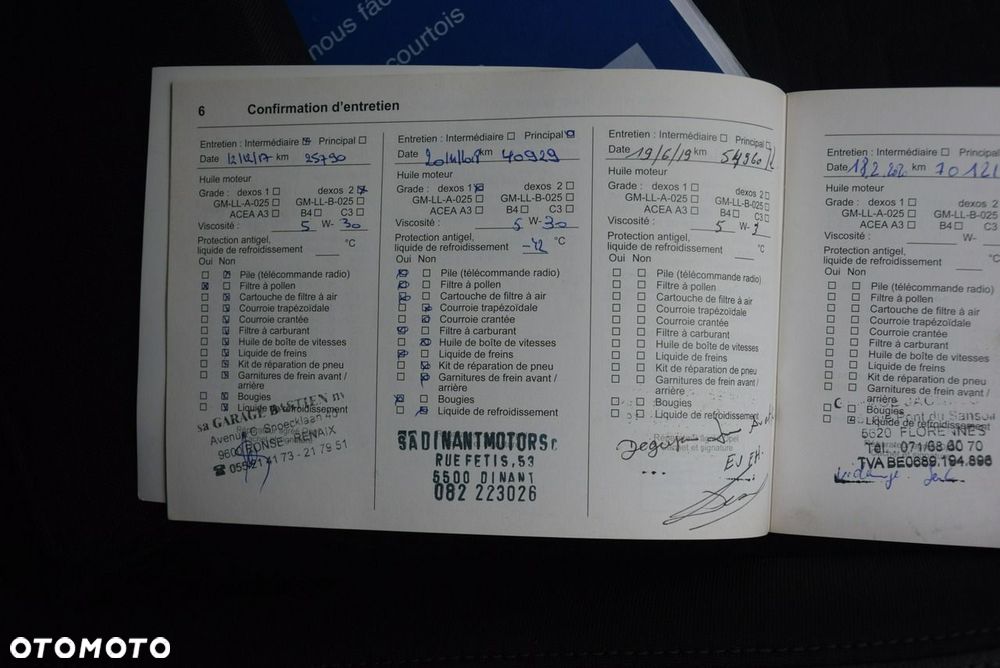 nous fac
courtois
6 Confirmation d'entretien
Entretien : Intermédiaire Principal
Date 12/12/17 km 25790
Huile moteur
Grade : dexos 1 dexos 2
GM-LL-A-025 GM-LL-B-025
ACEA A3 B4 C3
Viscosité : 5 W- 30
Protection antigel,
liquide de refroidissement °C
Oui Non
Pile (télécommande radio)
Filtre à pollen
Cartouche de filtre à air
Courroie trapézoïdale
Courroie crantée
Filtre à carburant
Huile de boîte de vitesses
Liquide de freins
Kit de réparation de pneu
Garnitures de frein avant /
arrière
Bougies
Liquide de refroidissement
sa GARAGE BASTIEN nv
Avenue C. Snoecklaan 45
9600 RONSE - RENAIX
☎ 055/21 41 73 - 21 79 51
Entretien : Intermédiaire Principal
Date km 40929
Huile moteur
Grade : dexos 1 dexos 2
GM-LL-A-025 GM-LL-B-025
ACEA A3 B4 C3
Viscosité : 5 W- 30
Protection antigel,
liquide de refroidissement -42 °C
Oui Non
Pile (télécommande radio)
Filtre à pollen
Cartouche de filtre à air
Courroie trapézoïdale
Courroie crantée
Filtre à carburant
Huile de boîte de vitesses
Liquide de freins
Kit de réparation de pneu
Garnitures de frein avant /
arrière
Bougies
Liquide de refroidissement
SA DINANTMOTORS
RUE FETIS, 53
5500 DINANT
082 223026
Entretien : Intermédiaire Principal
Date 19/6/19 km 54960
Huile moteur
Grade : dexos 1 dexos 2
GM-LL-A-025 GM-LL-B-025
ACEA A3 B4 C3
Viscosité : 5 W-
Protection antigel,
liquide de refroidissement °C
Oui Non
Pile (télécommande radio)
Filtre à pollen
Cartouche de filtre à air
Courroie trapézoïdale
Courroie crantée
Filtre à carburant
Huile de boîte de vitesses
Liquide de freins
Kit de réparation de pneu
Garnitures de frein avant /
arrière
Bougies
Liquide de refroidissement
et signature
Entretien : Intermédiaire Principal
Date 18.2.2020 km 70121
Huile moteur
Grade : dexos 1 dexos 2
GM-LL-A-025 GM-LL-B-025
ACEA A3 B4 C3
Viscosité : W-
Protection antigel,
liquide de refroidissement °C
Oui Non
Pile (télécommande radio)
Filtre à pollen
Cartouche de filtre à air
Courroie trapézoïdale
Courroie crantée
Filtre à carburant
Huile de boîte de vitesses
Liquide de freins
Kit de réparation de pneu
Garnitures de frein avant /
arrière
Bougies
Liquide de refroidissement
Pont du Sanson
5620 FLORENNES
Tél. 071/68 60 70
TVA BE0689.194.896
vidange
OTOMOTO